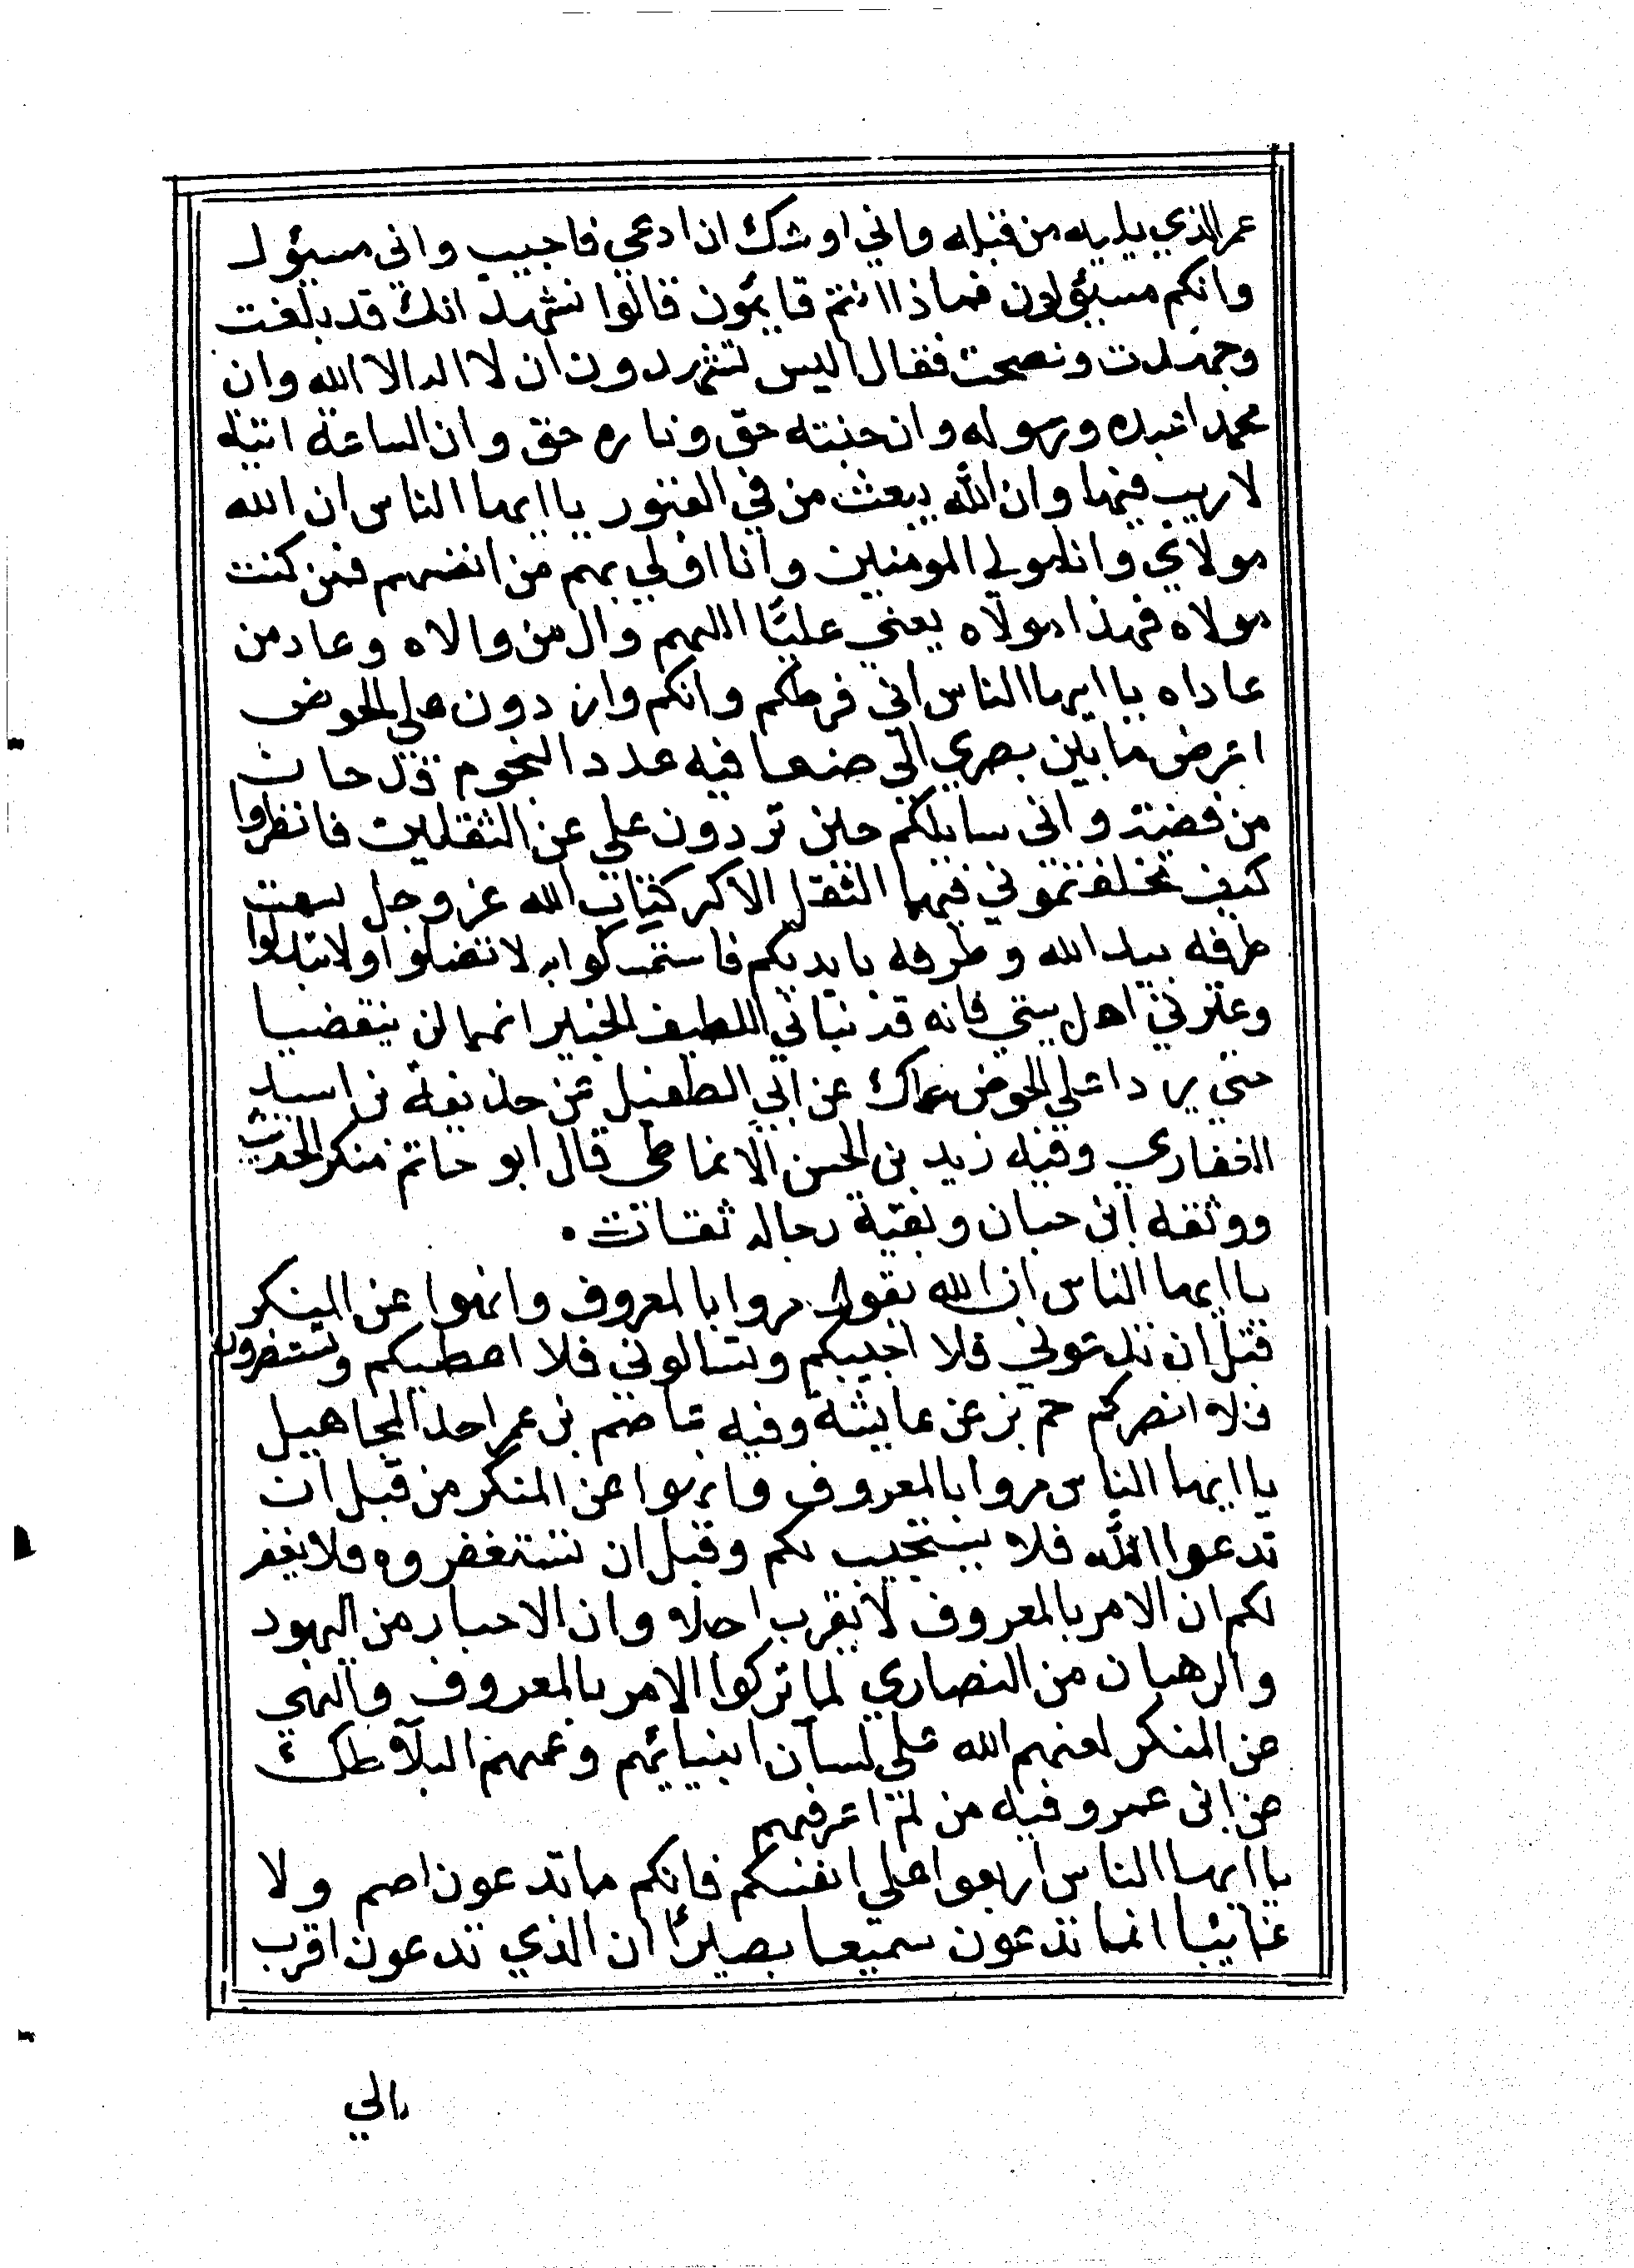 عمر الذي يليه من قبله واني اوشك ان ادعي فاجيب واني مسئول
وانكم مسئولون فماذا انتم قايلون قالوا نشهد انك قد بلغت
وجهدت ونصحت فقال اليس تشهدون ان لا اله الا الله وان
محمدا عبده ورسوله وان جنته حق وناره حق وان الساعة اتية
لا ريب فيها وان الله يبعث من في القبور يا ايها الناس ان الله
مولاي وانا مولي المومنين وانا اولي بهم من انفسهم فمن كنت
مولاه فهذا مولاه يعني عليًا اللهم وال من والاه وعاد من
عاداه يا ايها الناس اني فرطكم وانكم واردون علي الحوض
اعرض ما بين بصري الي صنعا فيه عدد النجوم قدحان
من فضة واني سايلكم حين تردون علي عن الثقلين فانظروا
كيف تخلفتموني فيهما الثقل الاكبر كتاب الله عز وجل سبب
طرفه بيد الله وطرفه بايديكم فاستمسكوا به لا تضلوا ولا تبدلوا
وعترتي اهل بيتي فانه قد نباني اللطيف الخبير انهما لن ينقضيا
حتي يردا علي الحوض سماك عن ابي الطفيل عن حذيفة بن اسيد
الغفاري وفيه زيد بن الحسن الانماطي قال ابو حاتم منكر الحديث
ووثقه ابن حبان وبقية رجاله ثقات •
يا ايها الناس ان الله يقول مروا بالمعروف وانهوا عن المنكر
قبل ان تدعوني فلا اجيبكم وتسالوني فلا اعطيكم وتستنصروني
فلا انصركم حم بز عن عايشة وفيه عاصم بن عمر احد المجاهيل
يا ايها الناس مروا بالمعروف وانهوا عن المنكر من قبل ان
تدعوا الله فلا يستجيب لكم وقبل ان تستغفروه فلا يغفر
لكم ان الامر بالمعروف لا يقرب اجلا وان الاحبار من اليهود
والرهبان من النصاري لما تركوا الامر بالمعروف والنهي
عن المنكر لعنهم الله علي لسان انبيائهم وعمهم البلاء طك
عن ابن عمر وفيه من لم اعرفهم
يا ايها الناس اربعوا علي انفسكم فانكم ما تدعون اصم ولا
غائبا انما تدعون سميعا بصيرًا ان الذي تدعون اقرب
الي